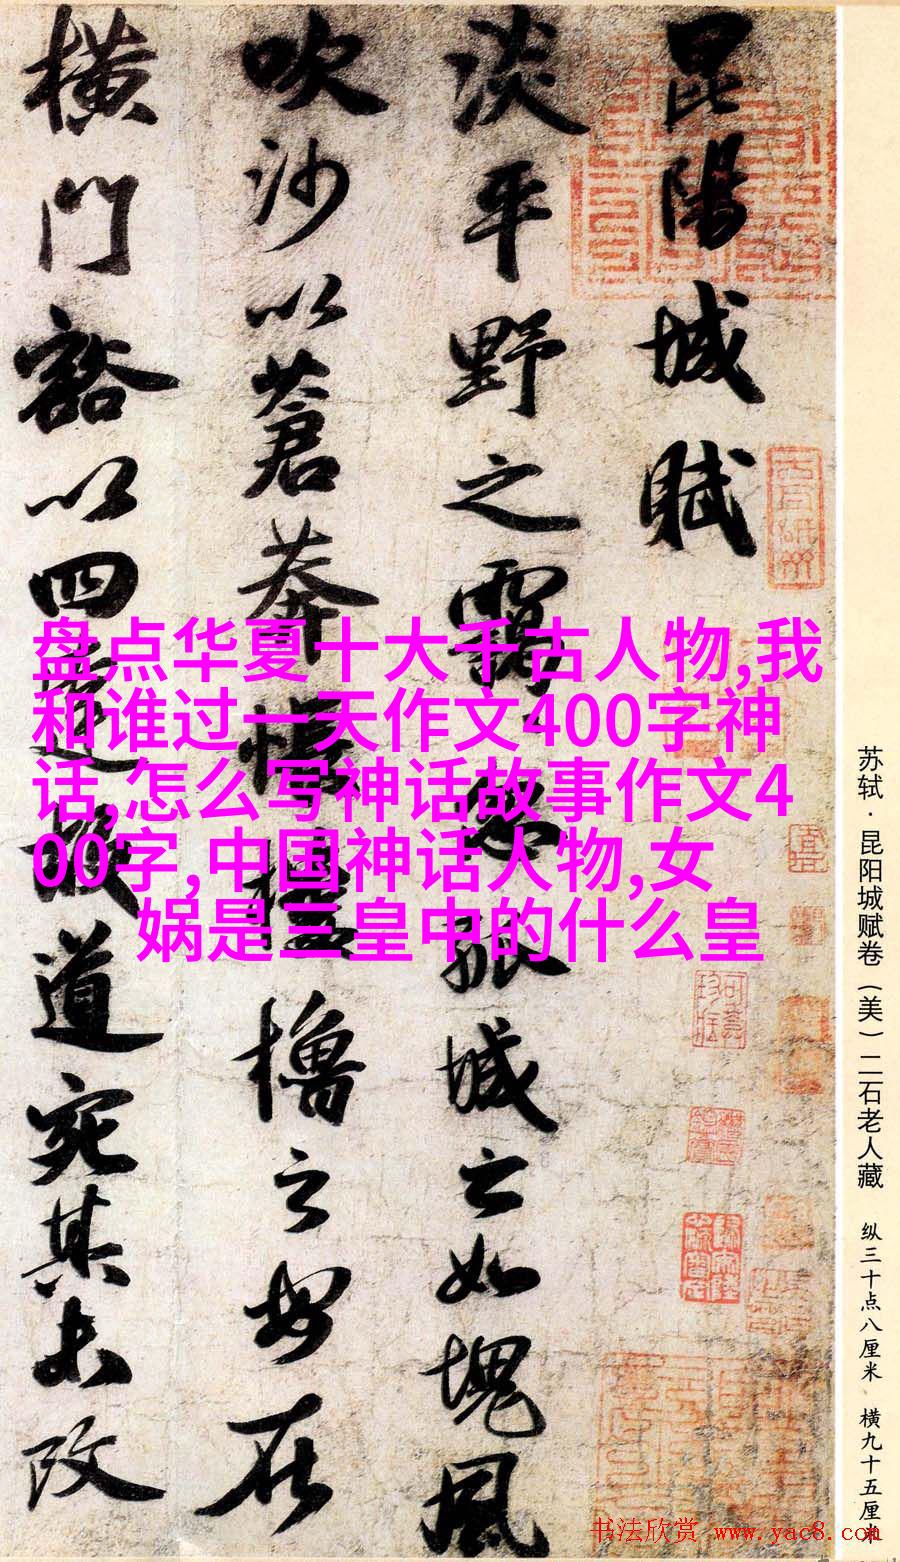 昆陽城賦
淡平野之靄靄忽孤城之如塊風
吹沙以蒼莽悵樓櫓之安在
橫門豁以四達故道宛其未改
盘点华夏十大千古人物,我
和谁过一天作文400字神
话,怎么写神话故事作文4
00字,中国神话人物,女
娲是三皇中的什么皇
苏轼·昆阳城赋卷（美）二石老人藏 纵三十点八厘米 横九十五厘米
书法欣赏 www.yac8.com